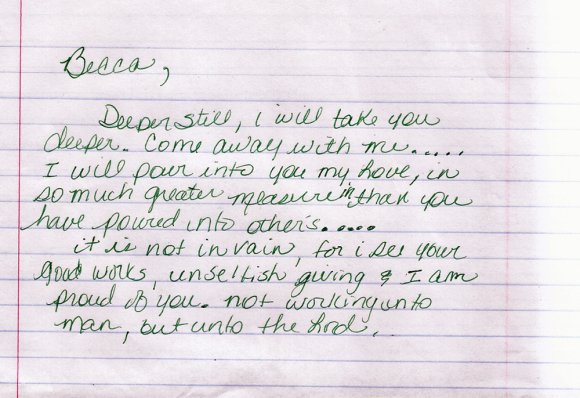 Becca,
Deeper still, i will take you
deeper.. Come away with me.....
I will pour into you my Love, in
so much greater measure, than you
have poured into others.....
it is not in vain, for i see your
good works, unselfish giving & I am
proud of you. not working unto
man, but unto the Lord.